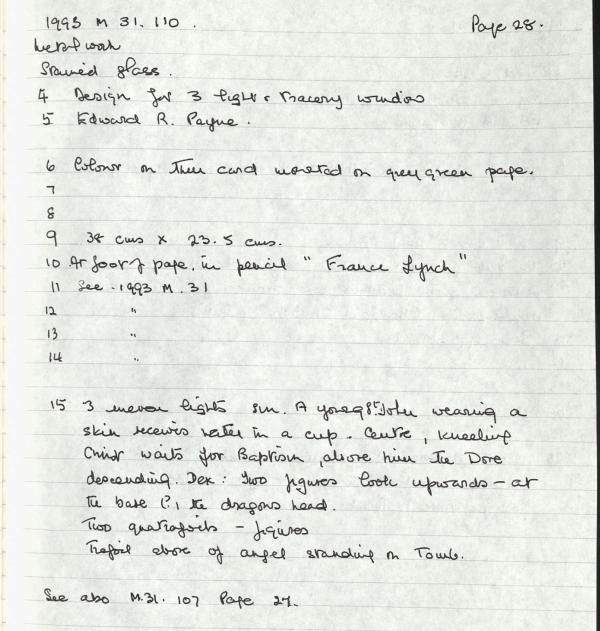 1993 M 31. 110. Page 28.
Metal work
Stained glass.
4 Design for 3 light & tracery window
5 Edward R. Payne.
6 Colour on thin card mounted on grey green page.
7
8
9 38 cms x 23.5 cms.
10 At foot of page, in pencil "France Lynch"
11 See 1993 M. 31
12 "
13 "
14 "
15 3 uneven lights Sin. A young St John wearing a
skin receives water in a cup. Centre, kneeling
Christ waits for Baptism, above him the Dove
descending. Dex: Two figures look upwards - at
the base (?) the dragons head.
Two quatrefoils - figures
Trefoil above of angel standing on Tomb.
See also M.31. 107 Page 27.